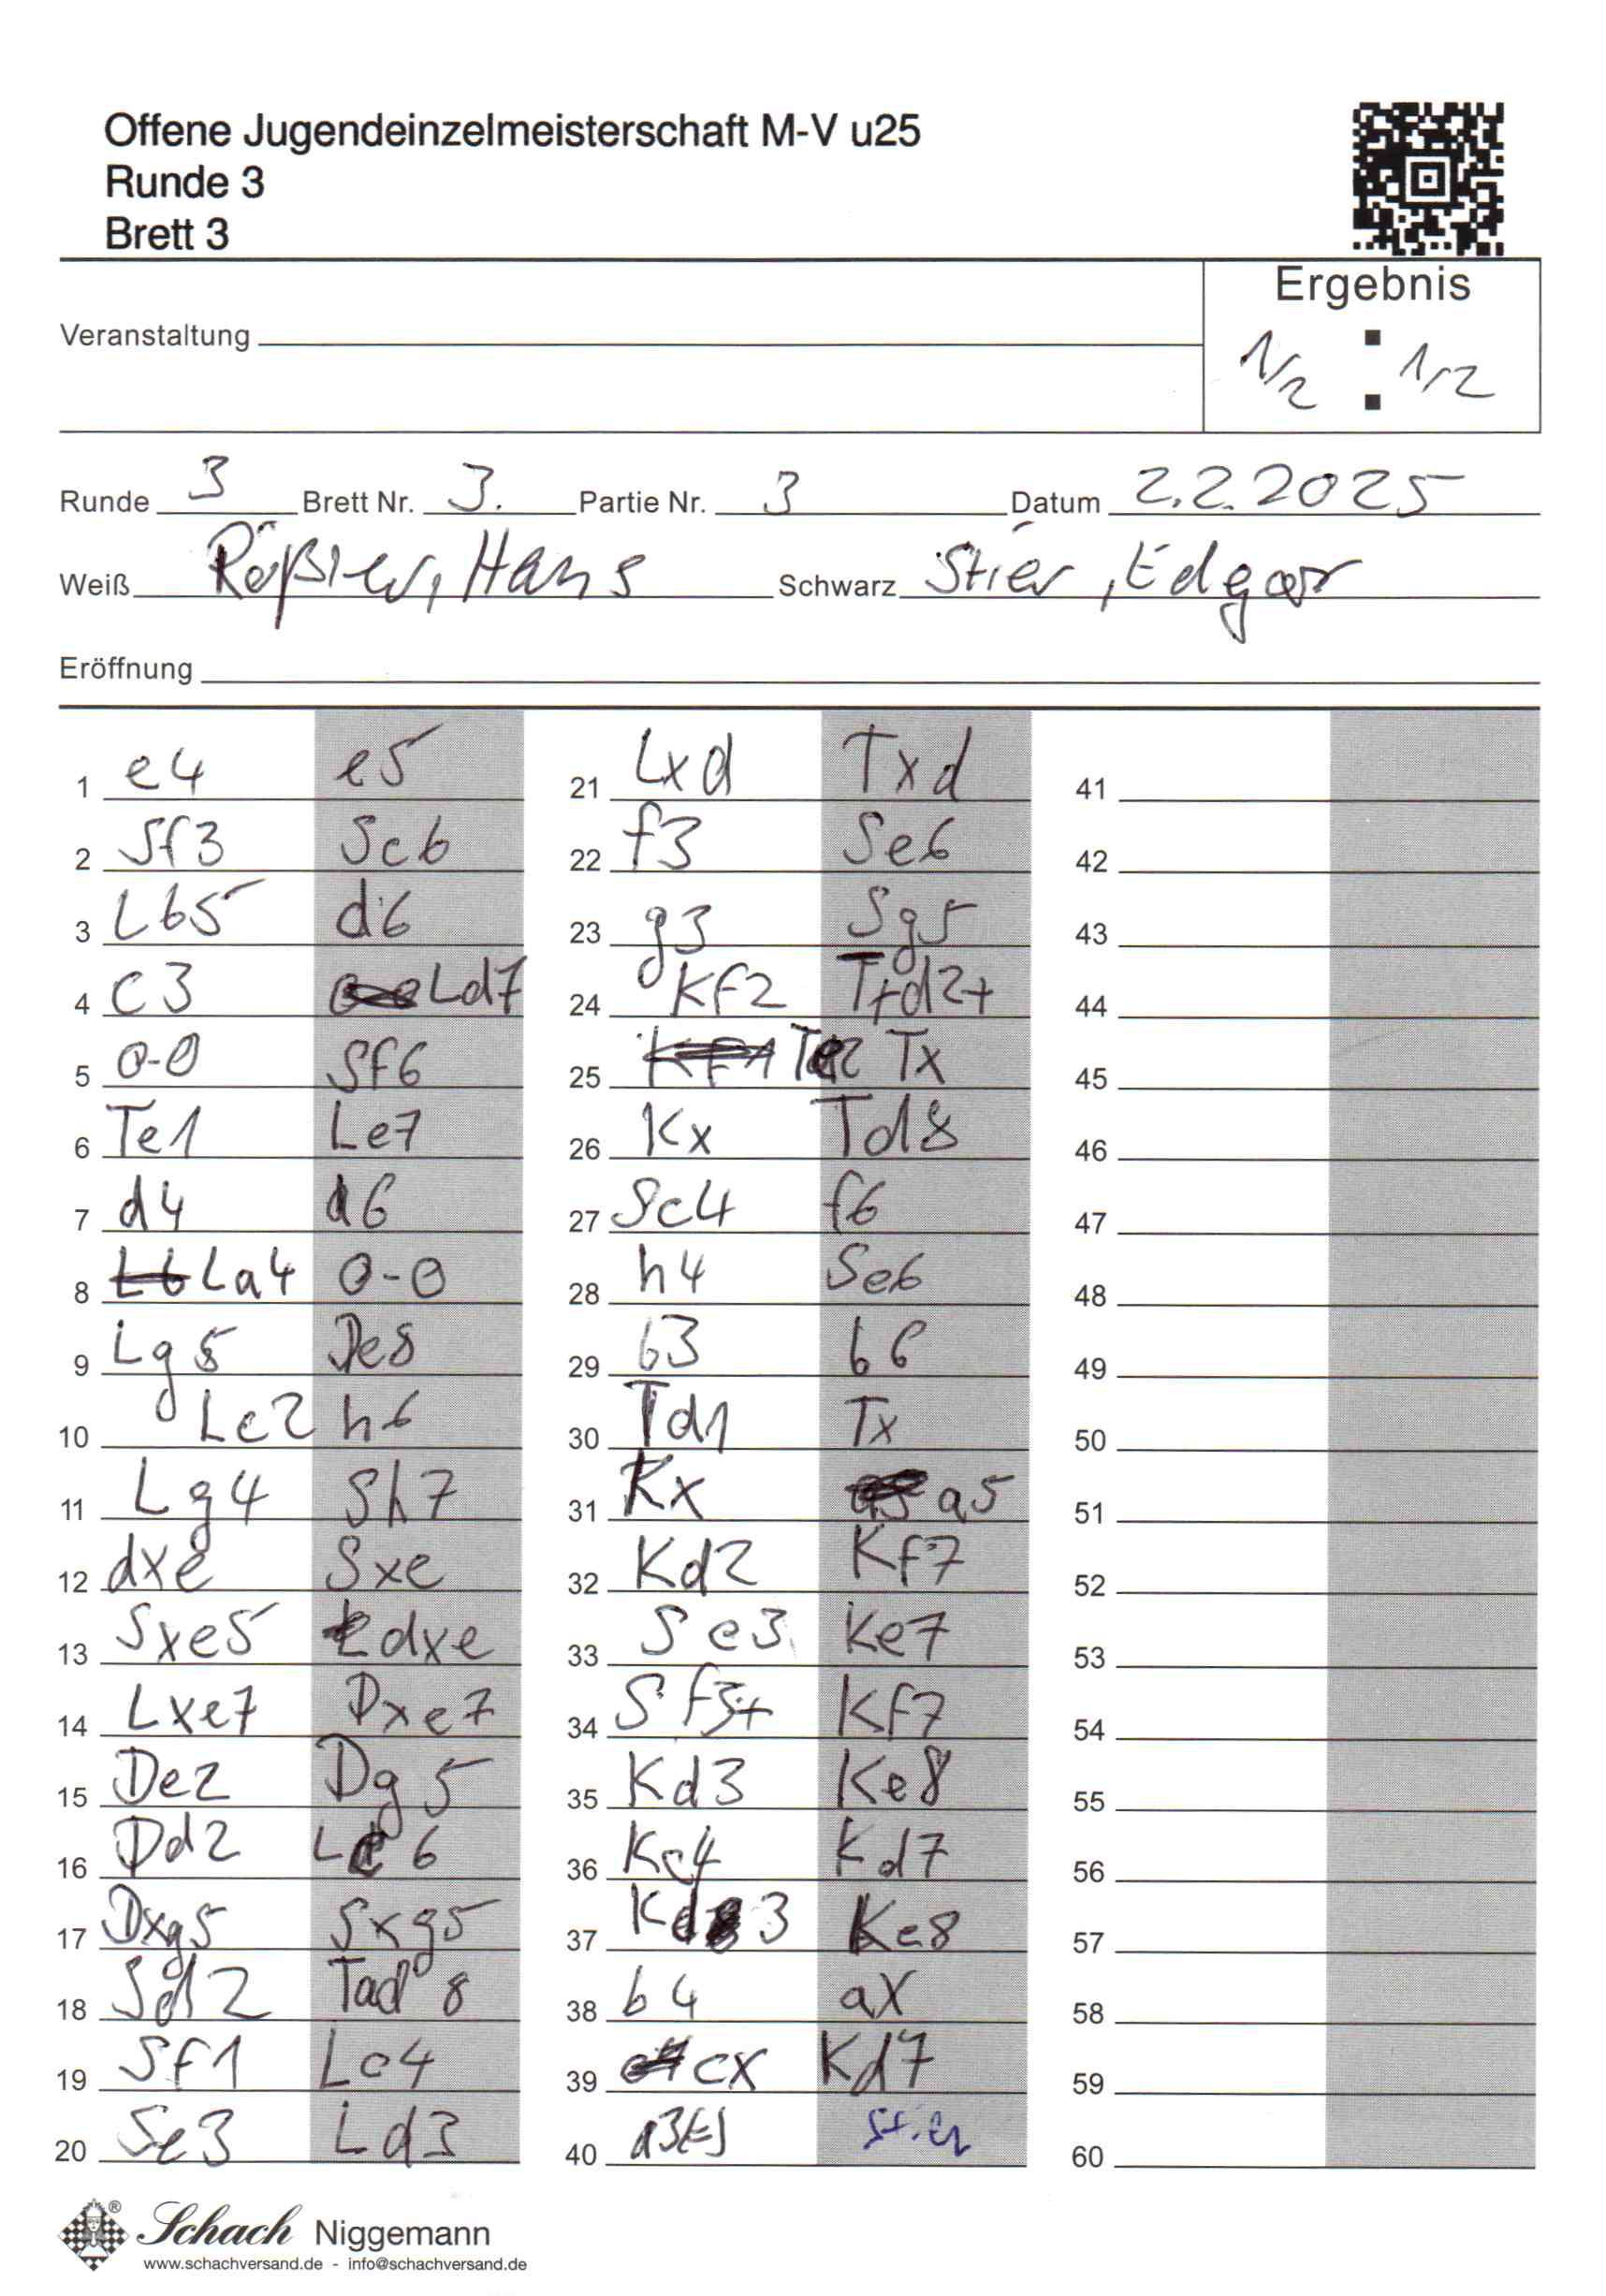 Offene Jugendeinzelmeisterschaft M-V u25
Runde 3
Brett 3
Ergebnis
1/2 : 1/2
Veranstaltung
Runde 3 Brett Nr. 3. Partie Nr. 3 Datum 2.2.2025
Weiß Rößler, Hans Schwarz Stier, Edgar
Eröffnung
1 e4 e5
2 Sf3 Sc6
3 Lb5 d6
4 c3 Ld7
5 0-0 Sf6
6 Te1 Le7
7 d4 a6
8 La4 0-0
9 Lg5 De8
10 Lc2 h6
11 Lg4 Sh7
12 dxe Sxe
13 Sxe5 dxe
14 Lxe7 Dxe7
15 De2 Dg5
16 Dd2 Lc6
17 Dxg5 Sxg5
18 Sd2 Tad8
19 Sf1 Lc4
20 Se3 Ld3
21 Lxd Txd
22 f3 Se6
23 g3 Sg5
24 Kf2 Td2+
25 Te2 Tx
26 Kx Td8
27 Sc4 f6
28 h4 Se6
29 b3 b6
30 Td1 Tx
31 Kx a5
32 Kd2 Kf7
33 Se3 Ke7
34 Sf5+ Kf7
35 Kd3 Ke8
36 Kc4 Kd7
37 Kd3 Ke8
38 b4 ax
39 cx Kd7
40 a3(=) Stier
41
42
43
44
45
46
47
48
49
50
51
52
53
54
55
56
57
58
59
60
Schach Niggemann
www.schachversand.de - info@schachversand.de